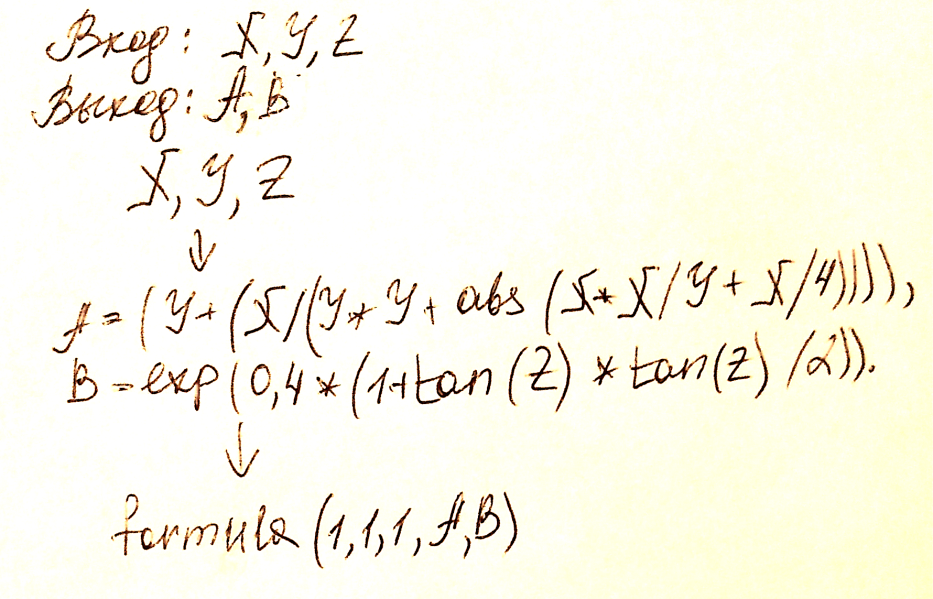 Вход: X, Y, Z
Выход: A, B
X, Y, Z
↓
A = (Y + (X/(Y * Y + abs (X * X/Y + X/4)))),
B = exp(0,4 * (1+tan(Z) * tan(Z) /2)).
↓
formula (1,1,1, A,B)